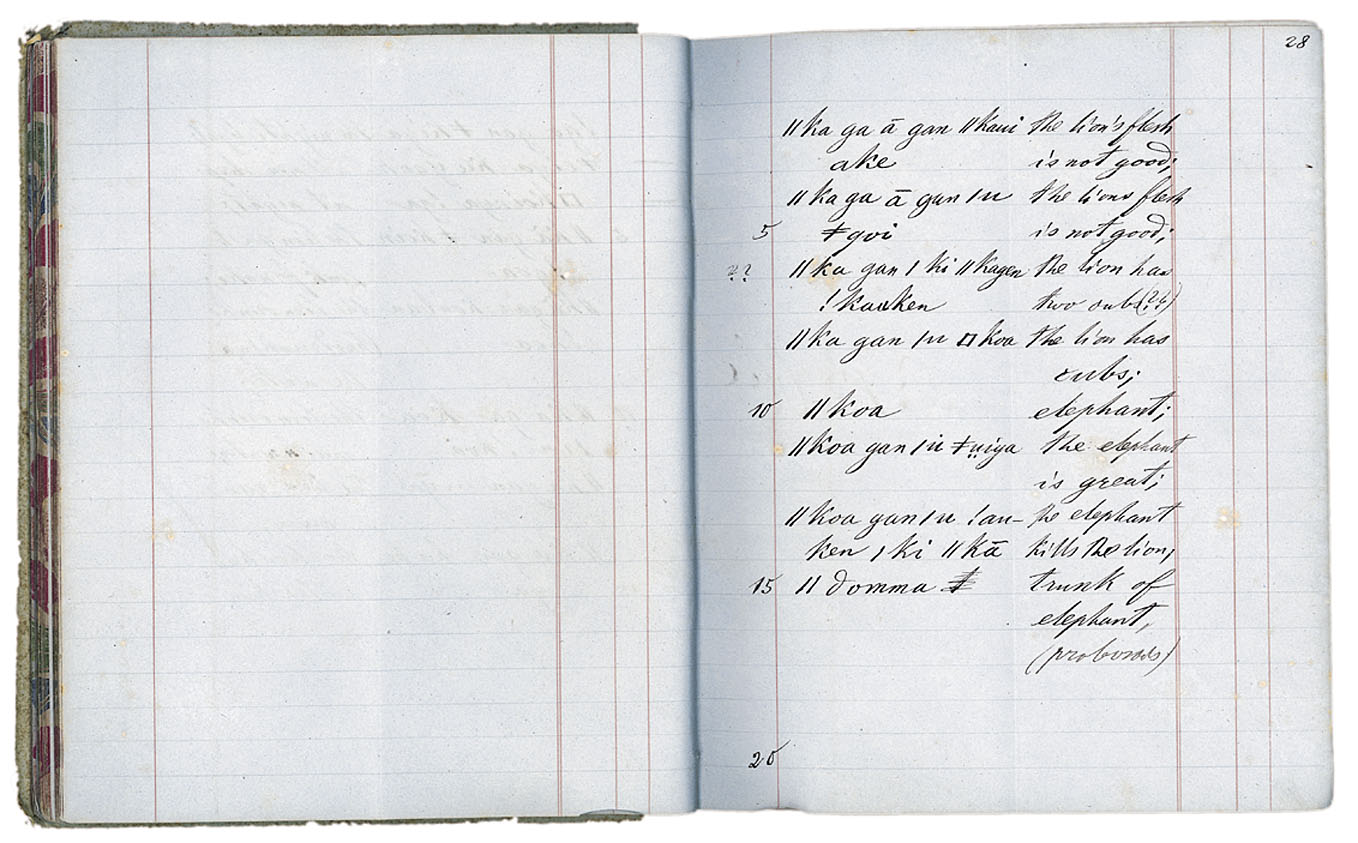 28
ǁka ga ā gan ǁkaui the lion's flesh
ake is not good;
ǁka ga ā gan ıu the lions flesh
5 ǂgoi is not good;
?? ǁka gan ǀki ǁkagen the lion has
!kauken two cubs(?!)
ǁka gan ıu ◻koa the lion has
cubs;
10 ǁkoa elephant;
ǁkoa gan ıu the elephant
is great;
ǁkoa gan ıu !au- the elephant
ken ǀki ǁkā kills the lion;
15 ǁdomma trunk of
elephant,
(proboscis)
20